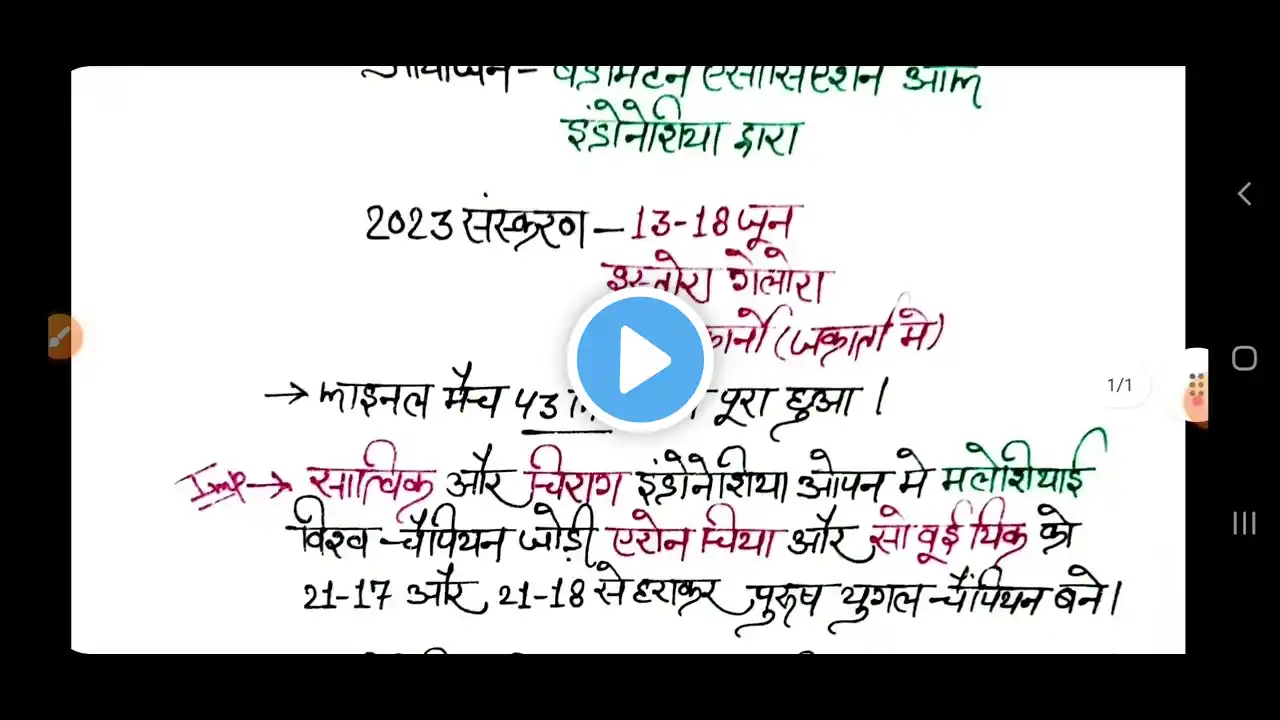 आयोजन - बैडमिंटन एसोसिएशन ऑफ
इंडोनेशिया द्वारा
2023 संस्करण - 13-18 जून
इस्तोरा गेलोरा
कार्नो (जकार्ता मे)
→ फाइनल मैच 43 पूरा हुआ।
Imp → सात्विक और चिराग इंडोनेशिया ओपन मे मलेशियाई
विश्व चैंपियन जोड़ी एरोन चिया और सो वूई यिक को
21-17 और 21-18 से हराकर पुरूष युगल चैंपियन बने।
1/1